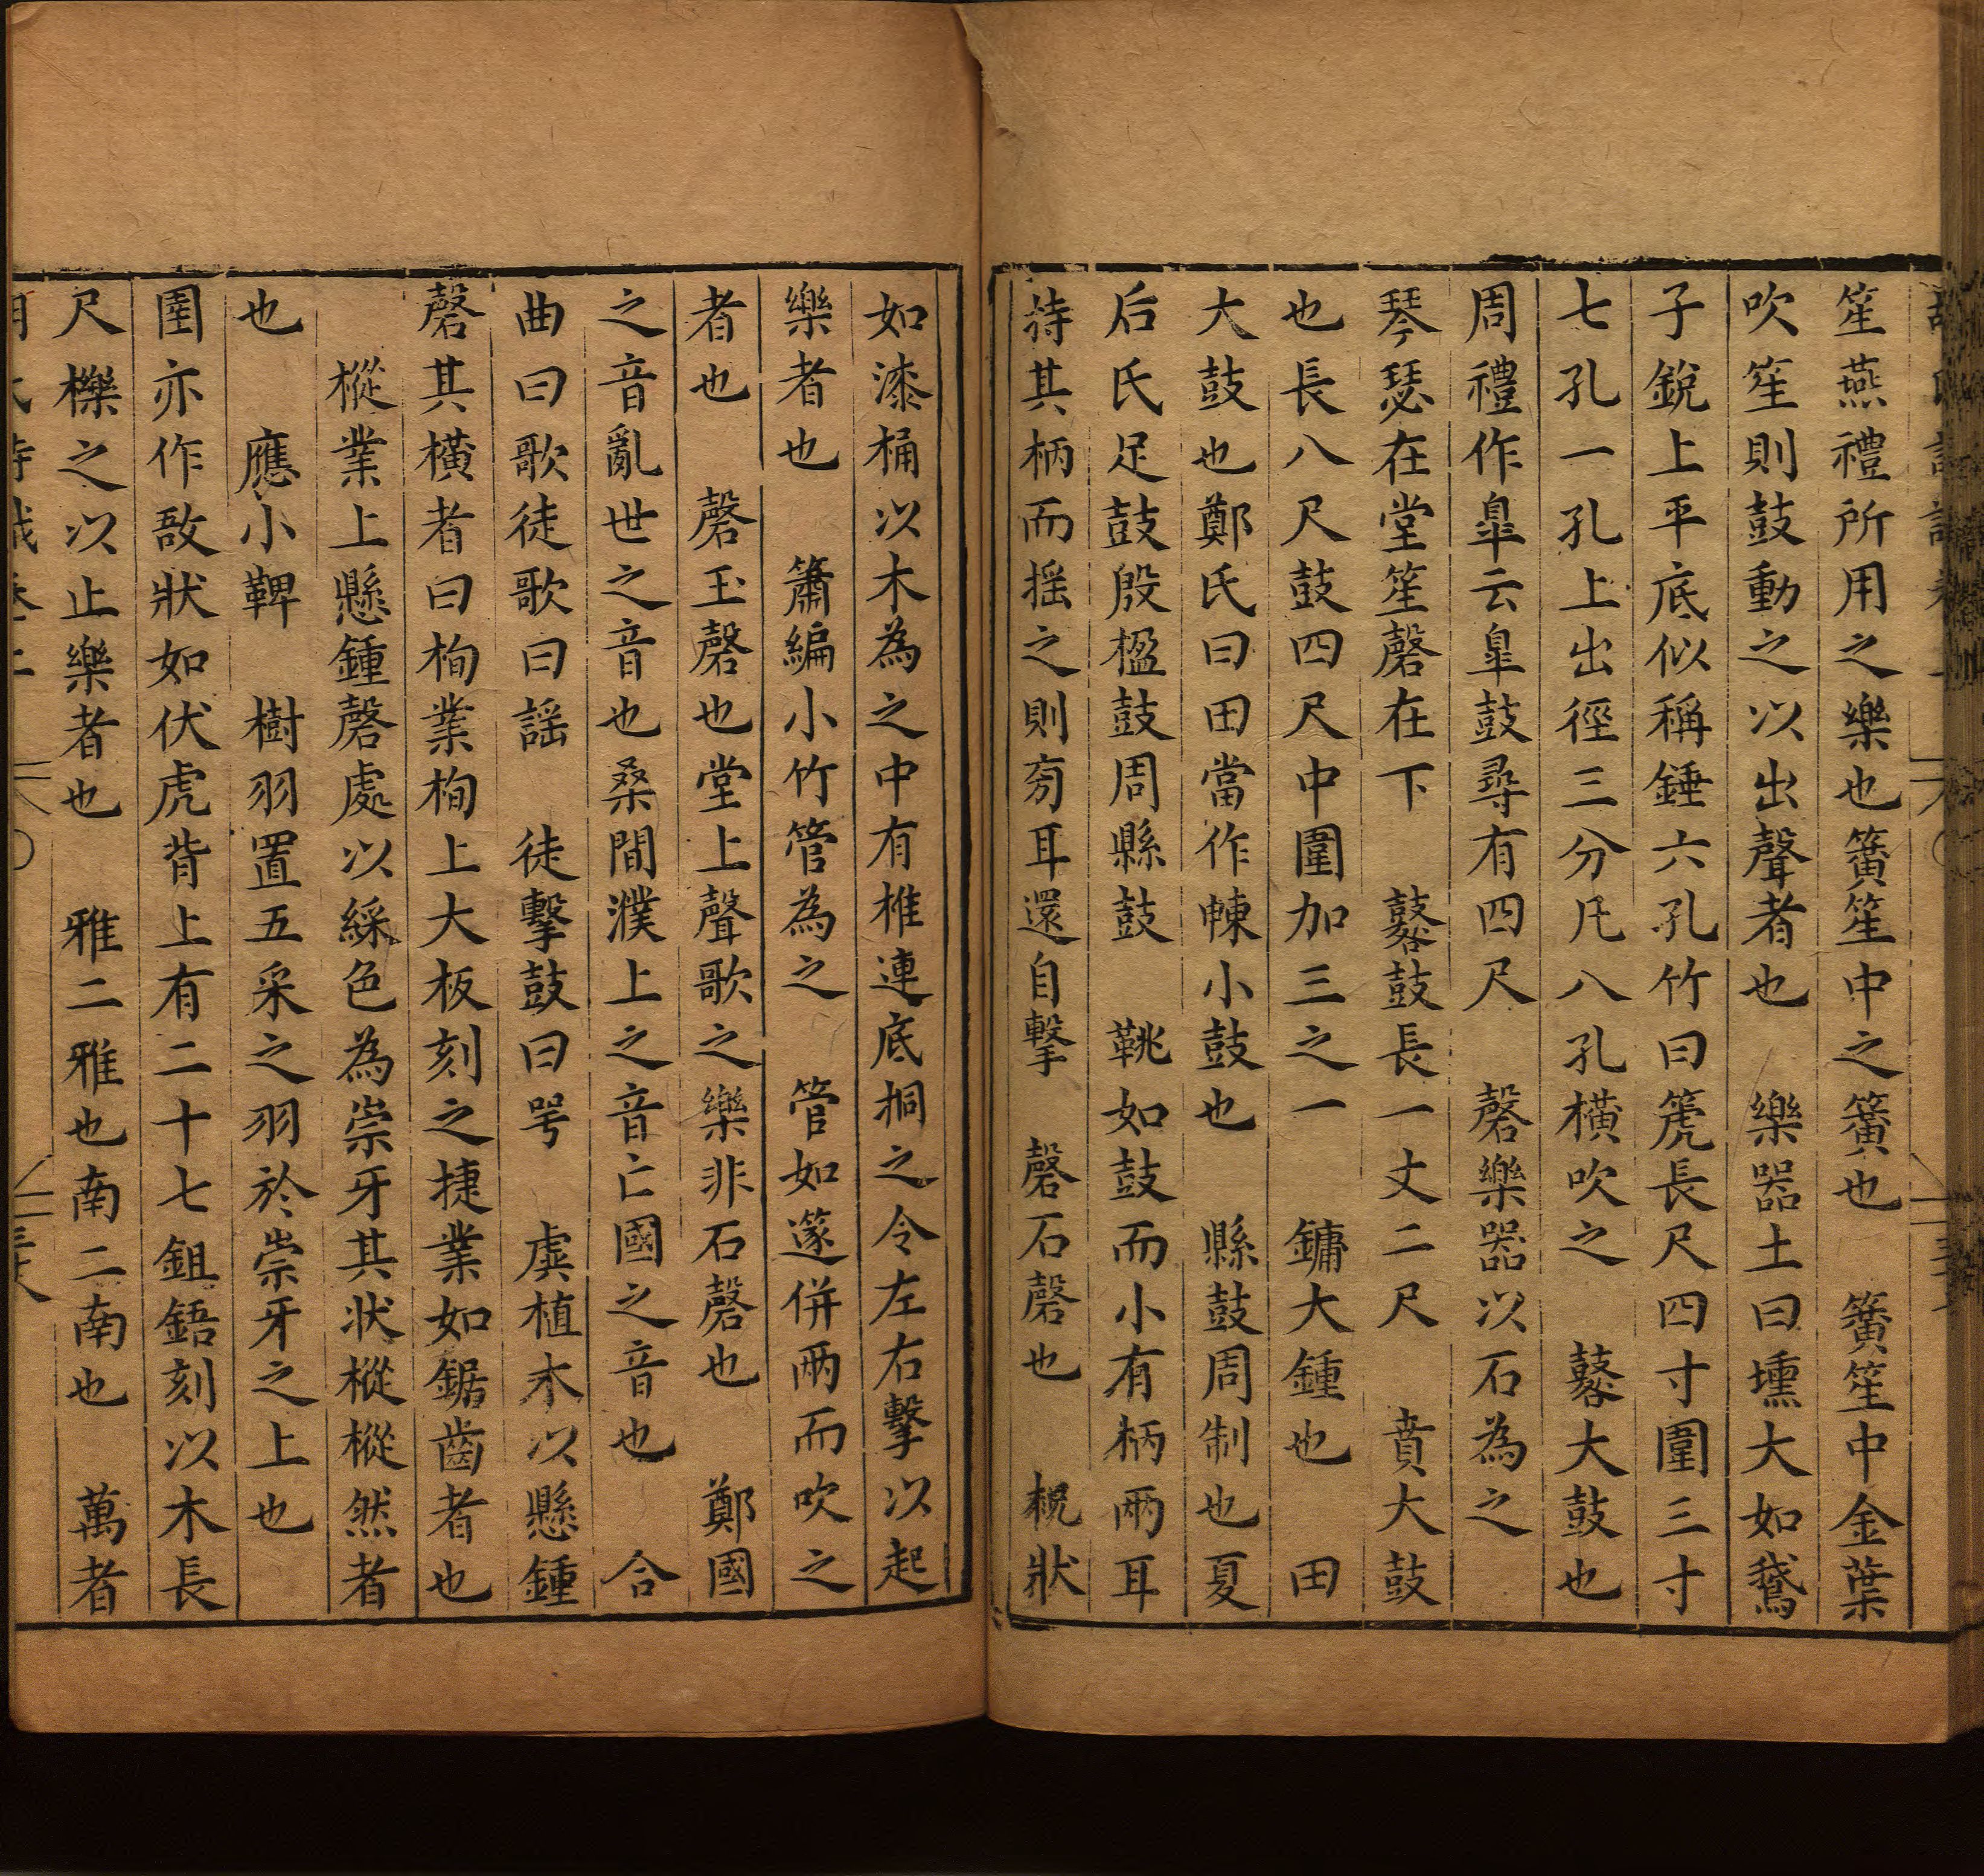 笙燕禮所用之樂也簧笙中之簧也　簧笙中金葉
吹笙則鼓動之以出聲者也　樂器土曰壎大如鵞
子銳上平底似稱錘六孔竹曰箎長尺四寸圍三寸
七孔一孔上出徑三分凡八孔橫吹之　鼛大鼓也
周禮作臯云臯鼓尋有四尺　磬樂器以石為之
琴瑟在堂笙磬在下　鼛鼓長一丈二尺　賁大鼓
也長八尺鼓四尺中圍加三之一　鏞大鍾也　田
大鼓也鄭氏曰田當作㯥小鼓也　縣鼓周制也夏
后氏足鼓殷楹鼓周縣鼓　鞉如鼓而小有柄兩耳
持其柄而摇之則旁耳還自擊　磬石磬也　柷狀
如漆桶以木為之中有椎連底挏之令左右擊以起
樂者也　簫編小竹管為之　管如篴併兩而吹之
者也　磬玉磬也堂上聲歌之樂非石磬也　鄭國
之音亂世之音也桑間濮上之音亡國之音也　合
曲曰歌徒歌曰謡　徒擊鼓曰咢　虡植木以懸鍾
磬其横者曰栒業栒上大板刻之捷業如鋸齒者也
樅業上懸鍾磬處以綵色為崇牙其狀樅樅然者
也　應小鞞　樹羽置五采之羽於崇牙之上也
圉亦作敔狀如伏虎背上有二十七鉏鋙刻以木長
尺櫟之以止樂者也　雅二雅也南二南也　萬者